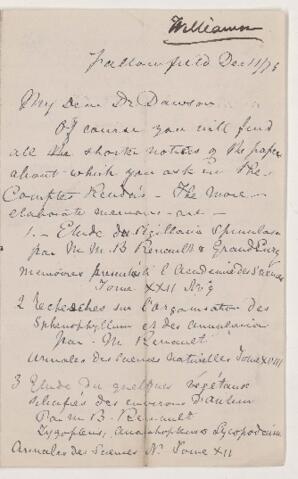 Williamson
Fallowfield Dec 11/76
My Dear Dr Dawson
Of course you will find
all the shorter notices of the papers
about which you ask in the
Comptes Rendus - The more
elaborate memoirs are -
1. - Etude du Sigillaria Spinulosa
par M M. B Renault & Grand'Eury
Memoires presentés à l'Academie des Sciences
Tome XXII No 9
2 Recherches sur l'organisation des
Sphenophyllum et des Annularia
par M Renault
Annales des Sciences Naturelles Tome XVIII
3 Etude du quelques végétaux
silicifiés des environs d'Autun
Par M B. Renault
Zygopteris, Anachoropteris & Lycopodium
Annales des Sciences N. Tome XII